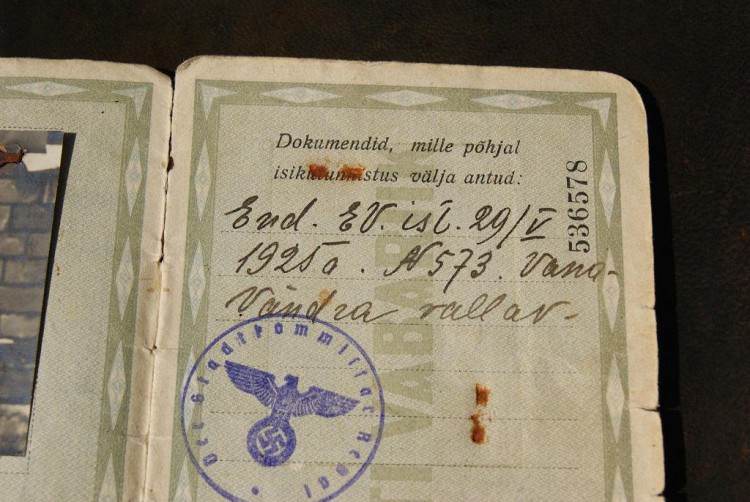 Dokumendid, mille põhjal
isikutunnistus välja antud:
End. EV. isl. 29/V
1925a. N573. Vana-
Vändra vallav-
536578
Der Stadtkommissar Reval
VABARIIK